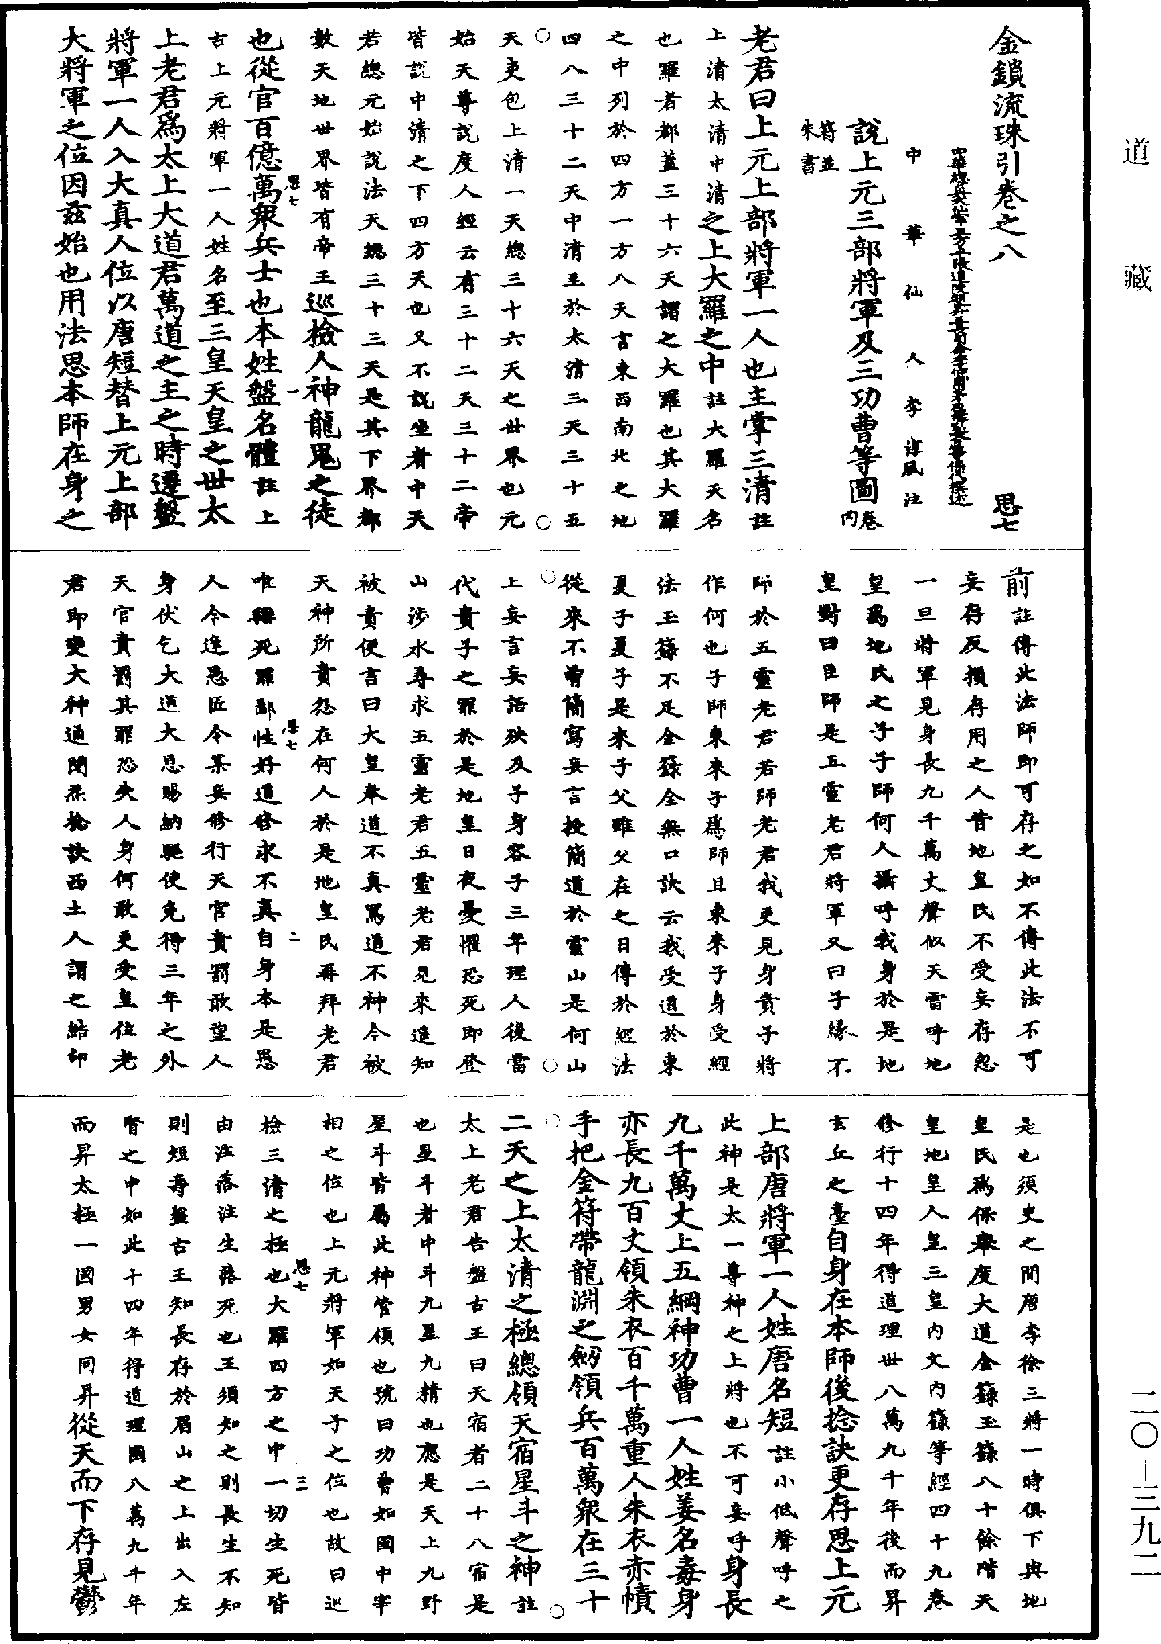 道藏
二〇—三九二
金鎖流珠引卷之八 思七
中華仙人李淳風注
說上元三部將軍及三功曹等圖 卷内
符並
朱書
老君曰上元上部將軍一人也主掌三清註
上清太清中清之上大羅之中註大羅天名
也羅者都蓋三十六天謂之大羅也其大羅
之中列於四方一方八天言東西南北之地
四八三十二天中清至於太清三天三十五
天更包上清一天總三十六天之世界也元
始天尊說度人經云有三十二天三十二帝
皆說中清之下四方天也又不說坐者中天
若總元始說法天總三十三天是其下界都
數天地世界皆有帝王巡檢人神龍鬼之徒
也從官百億萬眾兵士也本姓盤名體註上
古上元將軍一人姓名至三皇天皇之世太
上老君為太上大道君萬道之主之時遷盤
將軍一人入大真人位以唐短替上元上部
大將軍之位因茲始也用法思本師在身之
前註傳此法師即可存之如不傳此法不可
妄存反損存用之人昔地皇氏不受妄存忽
一旦將軍見身長九千萬丈聲似天雷呼地
皇為地民之子子師何人攝呼我身於是地
皇對曰臣師是五靈老君將軍又曰子緣不
師於五靈老君若師老君我更見身責子將
作何也子師東來子為師且東來子身受經
法玉籙不足金籙全無口訣云我受道於東
夏子夏子是來子父雖父在之日傳於經法
從來不曾簡寫妄言授簡道於靈山是何山
上妄言妄語殃及子身容子三年理人後當
代責子之罪於是地皇日夜憂懼恐死即登
山涉水尋求五靈老君五靈老君見來逆知
被責便言曰大皇奉道不真罵道不神今被
天神所責怨在何人於是地皇民再拜老君
唯稱死罪鄙性好道修求不真自身本是愚
人令逢愚匠令某妄修行天官責罰敢望人
身伏乞大道大恩賜納驅使免得三年之外
天官責罰其罪恐失人身何敢更受皇位老
君即變大神通閉炁捻訣西土人謂之結印
是也須臾之間唐李徐三將一時俱下與地
皇民為保舉度大道金籙玉籙八十餘階天
皇地皇人皇三皇內文內籙等經四十九卷
修行十四年得道理世八萬九千年後而昇
玄丘之臺自身在本師後捻訣更存思上元
上部唐將軍一人姓唐名短註小低聲呼之
此神是太一尊神之上將也不可妄呼身長
九千萬丈上五綱神功曹一人姓姜名毒身
亦長九百丈領朱衣百千萬重人朱衣赤幘
手把金符帶龍淵之劔領兵百萬眾在三十
二天之上太清之極總領天宿星斗之神註
太上老君告盤古王曰天宿者二十八宿是
也星斗者中斗九星九精也應是天上九野
星斗皆屬此神管領也號曰功曹如國中宰
相之位也上元將軍如天子之位也故曰巡
檢三清之極也大羅四方之中一切生死皆
由注落注生落死也王須知之則長生不知
則短壽盤古王知長存於眉山之上出入左
腎之中如此十四年得道理國八萬九千年
而昇太極一國男女同昇從天而下存見鬱